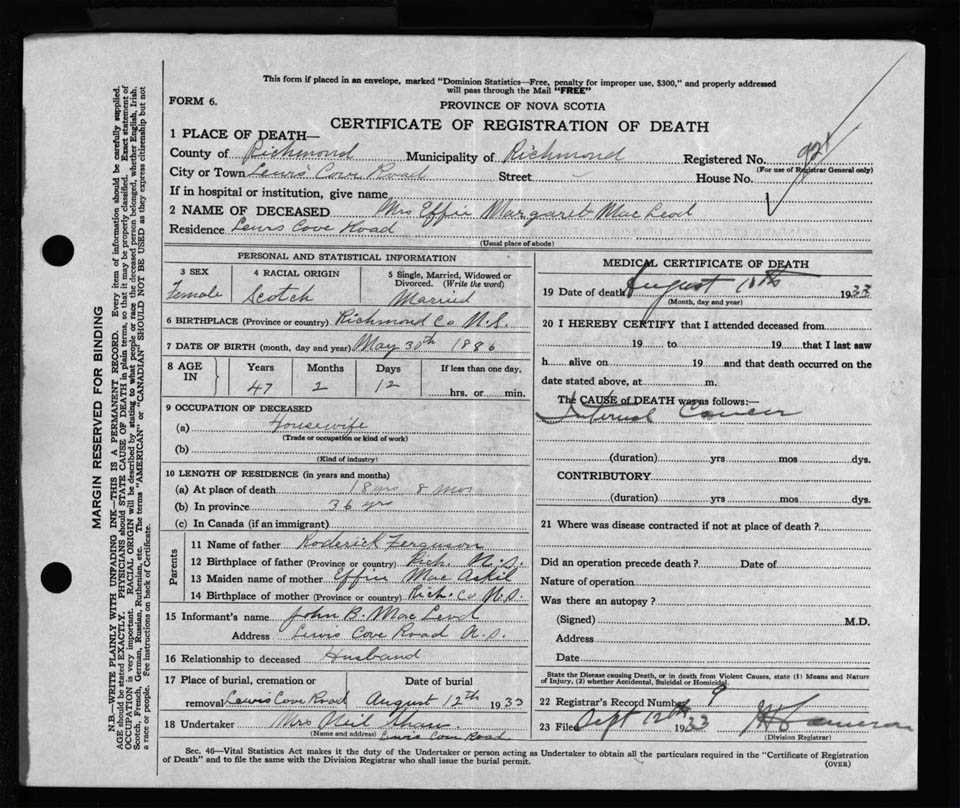 This form if placed in an envelope, marked "Dominion Statistics—Free, penalty for improper use, $300," and properly addressed
will pass through the Mail "FREE"
FORM 6.
PROVINCE OF NOVA SCOTIA
CERTIFICATE OF REGISTRATION OF DEATH
1 PLACE OF DEATH—
County of Richmond Municipality of Richmond Registered No. 921
(For use of Registrar General only)
City or Town Lewis Cove Road Street - House No.
If in hospital or institution, give name
2 NAME OF DECEASED Mrs Effie Margaret MacLeod
Residence Lewis Cove Road
(Usual place of abode)
PERSONAL AND STATISTICAL INFORMATION
3 SEX 4 RACIAL ORIGIN 5 Single, Married, Widowed or
Divorced. (Write the word)
Female Scotch Married
6 BIRTHPLACE (Province or country) Richmond Co N.S.
7 DATE OF BIRTH (month, day and year) May 30th 1886
8 AGE IN Years Months Days If less than one day,
47 2 12 hrs. or min.
9 OCCUPATION OF DECEASED
(a) Housewife
(Trade or occupation or kind of work)
(b)
(Kind of industry)
10 LENGTH OF RESIDENCE (in years and months)
(a) At place of death 18 yrs 8 mos
(b) In province 36 yrs
(c) In Canada (if an immigrant)
Parents
11 Name of father Roderick Ferguson
12 Birthplace of father (Province or country) Rich. N.S.
13 Maiden name of mother Effie MacAskil
14 Birthplace of mother (Province or country) Rich. Co N.S.
15 Informant's name John B. MacLeod
Address Lewis Cove Road N.S.
16 Relationship to deceased Husband
17 Place of burial, cremation or Date of burial
removal Lewis Cove Road August 12th 1933
18 Undertaker Mrs Neil Shaw.
(Name and address) Lewis Cove Road
MEDICAL CERTIFICATE OF DEATH
19 Date of death August 10th 1933
(Month, day and year)
20 I HEREBY CERTIFY that I attended deceased from
19 to 19 that I last saw
h alive on 19 and that death occurred on the
date stated above, at m.
The CAUSE of DEATH was as follows:—
Internal Cancer
(duration) yrs mos dys.
CONTRIBUTORY
(duration) yrs mos dys.
21 Where was disease contracted if not at place of death?
Did an operation precede death? Date of
Nature of operation
Was there an autopsy?
(Signed) M.D.
Address
Date
State the Disease causing Death, or in death from Violent Causes, state (1) Means and Nature
of Injury, (2) whether Accidental, Suicidal or Homicidal.
22 Registrar's Record Number 9
23 Filed Sept 12th 1933 Cameron
(Division Registrar)
Sec. 46—Vital Statistics Act makes it the duty of the Undertaker or person acting as Undertaker to obtain all the particulars required in the "Certificate of Registration
of Death" and to file the same with the Division Registrar who shall issue the burial permit.
(OVER)
MARGIN RESERVED FOR BINDING
N.B.—WRITE PLAINLY WITH UNFADING INK—THIS IS A PERMANENT RECORD. Every item of information should be carefully supplied.
AGE should be stated EXACTLY. PHYSICIANS should STATE CAUSE OF DEATH in plain terms, so that it may be properly classified. Exact statement of
OCCUPATION is very important. RACIAL ORIGIN will be described by stating to what people or race the deceased person belonged, whether English, Irish,
Scotch, French, German, Russian, Ruthenian, etc. The terms "AMERICAN" or "CANADIAN" SHOULD NOT BE USED as they express citizenship but not
a race or people. Fee instructions on back of Certificate.